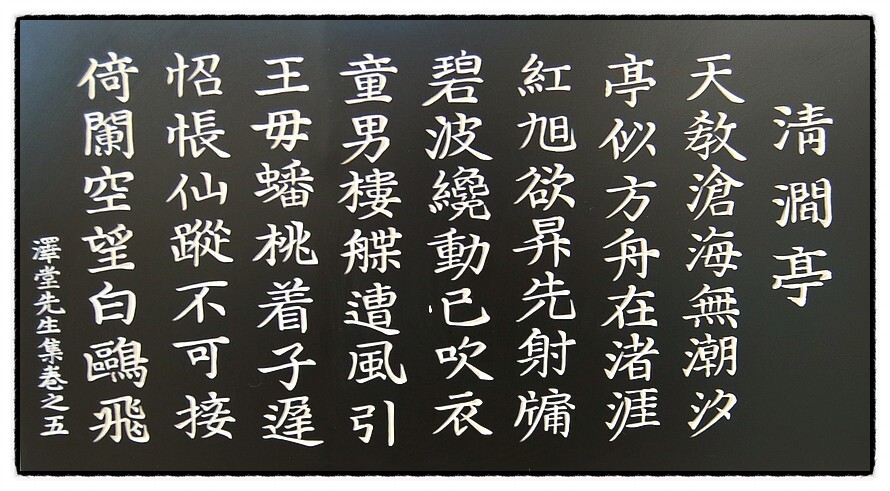 清澗亭
天教滄海無潮汐
亭似方舟在渚涯
紅旭欲昇先射牖
碧波纔動已吹衣
童男樓艓遭風引
王母蟠桃着子遲
怊悵仙蹤不可接
倚闌空望白鷗飛
澤堂先生集卷之五